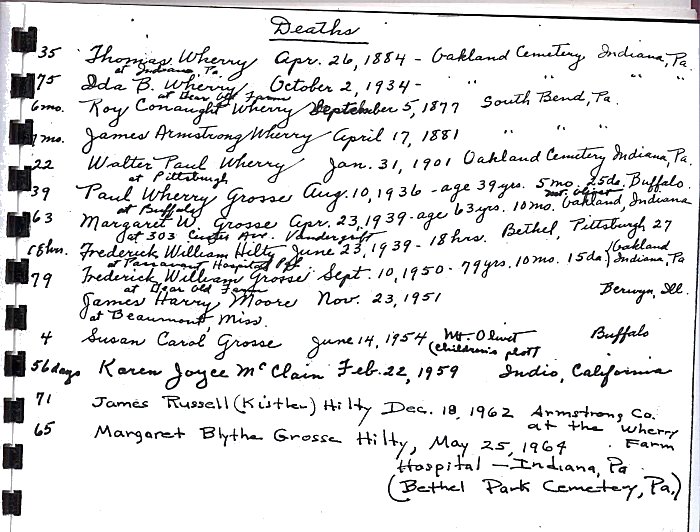 Deaths
35 Thomas Wherry Apr. 26, 1884 - Oakland Cemetery Indiana, Pa.
at Indiana, Pa.
75 Ida B. Wherry October 2, 1934 - " " " "
at Dear Old Farm
6 mo. Roy Conaught Wherry September 5, 1877 South Bend, Pa.
7 mo. James Armstrong Wherry April 17, 1881 " " "
22 Walter Paul Wherry Jan. 31, 1901 Oakland Cemetery Indiana, Pa.
at Pittsburgh
39 Paul Wherry Grosse Aug. 10, 1936 - age 39 yrs. 5 mo. 25 da. Buffalo
at Buffalo Mt. Olivet
63 Margaret W. Grosse Apr. 23, 1939 - age 63 yrs. 10 mo. Oakland, Indiana
at 303 Ave. Vandergrift
18 hrs. Frederick William Hilty June 23, 1939 - 18 hrs. Bethel, Pittsburgh 27
at Passavant Hospital Pgh
79 Frederick William Grosse Sept. 10, 1950 - 79 yrs. 10 mo. 15 da. (Oakland Indiana, Pa.
at Dear Old Farm
James Harry Moore Nov. 23, 1951 Berwyn, Ill.
at Beaumont, Miss.
4 Susan Carol Grosse June 14, 1954 Mt. Olivet Buffalo
(Children's plot)
56 days Karen Joyce McClain Feb. 22, 1959 Indio, California
71 James Russell (Kistler) Hilty Dec. 18, 1962 Armstrong Co.
at the Wherry
65 Margaret Blythe Grosse Hilty, May 25, 1964 Farm
Hospital - Indiana, Pa
(Bethel Park Cemetery, Pa.)